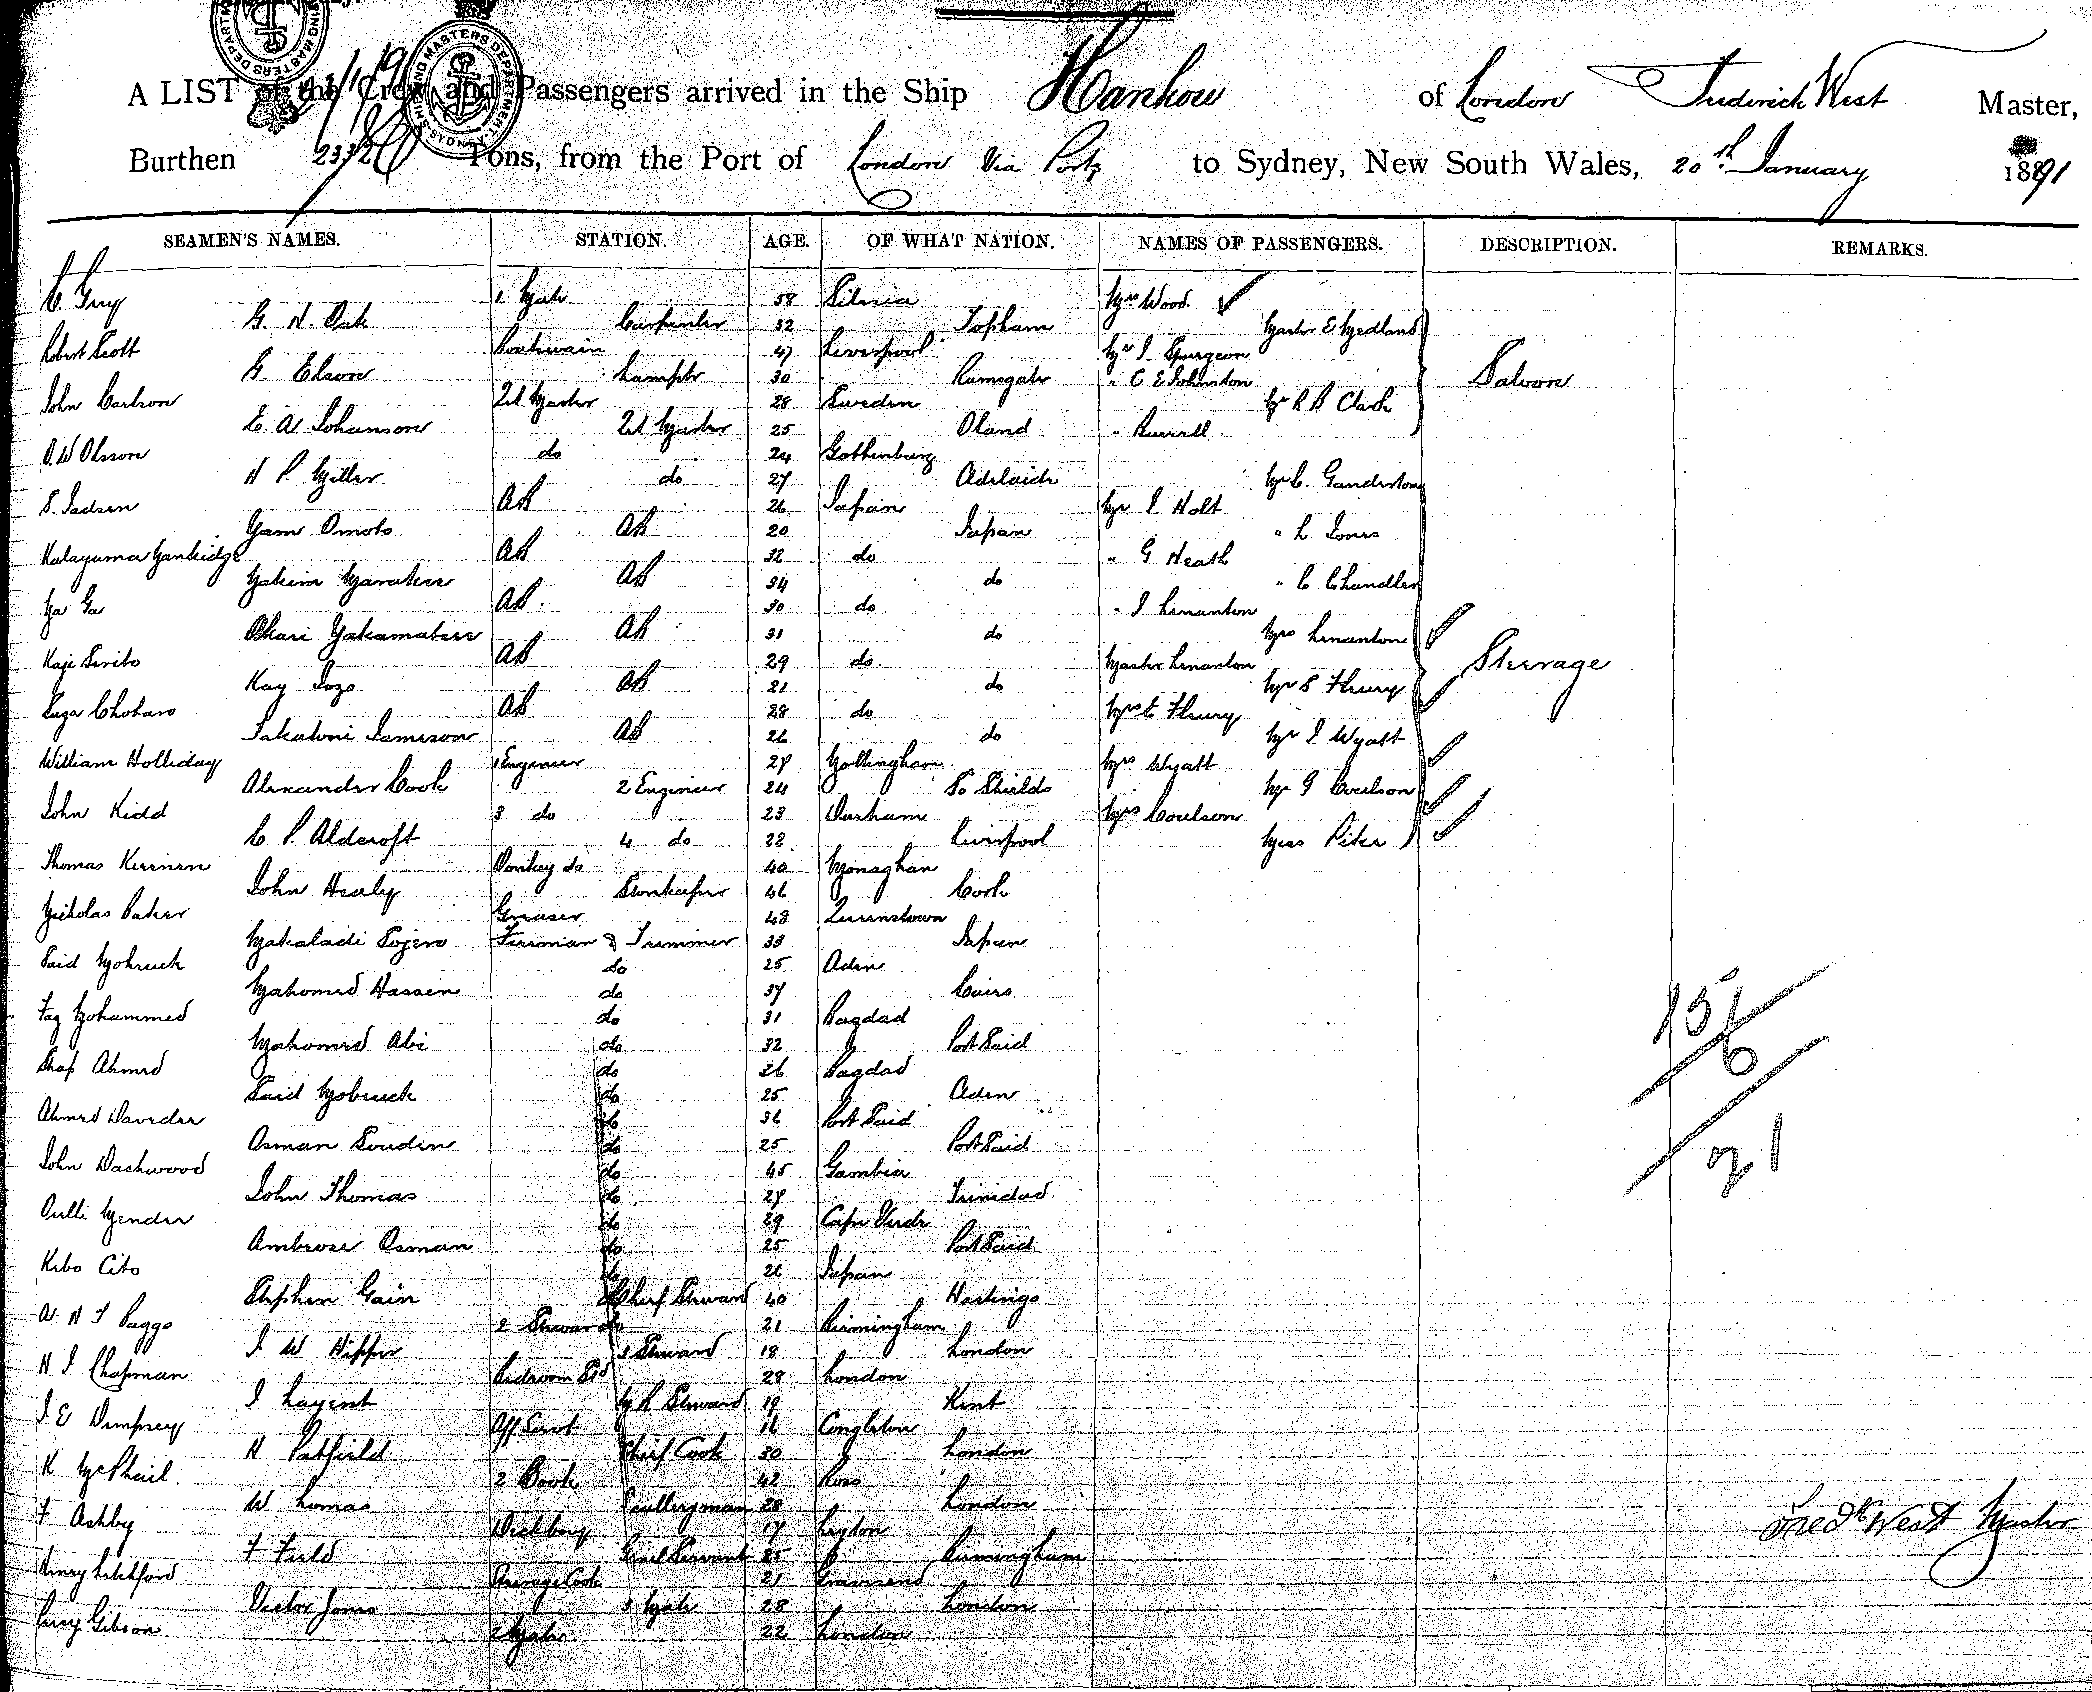 A LIST of the Crew and Passengers arrived in the Ship Hankow of London Frederick West Master,
Burthen 2332 Tons, from the Port of London Via Ports to Sydney, New South Wales, 20th January 1891
SEAMEN'S NAMES. STATION. AGE. OF WHAT NATION. NAMES OF PASSENGERS. DESCRIPTION. REMARKS.
C. Guy 1 Mate 58 Silvia Mrs Wood
G. N. Oak Carpenter 32 Topsham Master E Medland
Robert Scott Boatswain 47 Liverpool Mr J. Spurgeon
G Elson Lamptr 30 Ramsgate " C E Johnston Saloon
John Carlson 2d Master 28 Sweden Mr R B Clark
E. A Johanson 2d Master 25 Oland " Burrell
A. W Olsson do 24 Gothenburg
H P Miller do 27 Adelaide Mr C. Ganderton
S. Jadsen AB 26 Japan Mr J Holt
Yam Omoto AB 20 Japan " L Jones
AB 32 do " G Heath
AB 34 do " C Chandler
Ya Ga AB 30 do " J Linanton
AB 31 do Mrs Linanton
Kaji AB 29 do Master Linanton Steerage
Kay Sozo AB 21 do Mr S Fleury
Chobaro AB 28 do Mrs E Fleury
AB 26 do Mr J Wyatt
William Holliday 1 Engineer 27 Nottingham Mrs Wyatt
Alexander Cook 2 Engineer 24 So Shields Mr G Coulson
John Kidd 3 do 23 Durham Mrs Coulson
C. P. Aldcroft 4 do 22 Liverpool Miss Piter
Thomas Kiernan Donkey do 40 Monaghan
John Healy Storekeeper 46 Cork
Nicholas Baker Greaser 43 Queenstown
Fireman & Trimmer 33 Japan
Said Mobruck do 25 Aden
Mahomed Hassen do 37 Cairo
Faz Mohammed do 31 Bagdad
Mahomed Abi do 32 Port Said
Ahmed do 26 Bagdad
Said Mobruck do 25 Aden
Ahmed do 36 Port Said
Osman Soudin do 25 Port Said
John Dashwood do 45 Gambia
John Thomas do 27 Trinidad
do 29 Cape Verde
Ambrose Osman do 25 Port Said
Kibo Cito do 26 Japan
Stephen Gain Chief Steward 40 Hastings
2 Steward 21 Birmingham
J W Hipper 3 Steward 18 London
H J Chapman Bedroom Std 28 London
J Steward 19 Kent
J E Dempsey Off Servt 16 Congleton
H Patfield Chief Cook 30 London
K McPhail 2 Cook 42 Ross
W Lomas Sculleryman 28 London
F Ashby 17 Leyton
F Field Genl Servant 25 Birmingham
Henry Steerage Cook 21 Gravesend
Victor Jones 3 Mate 28 London
Percy Gibson 2 Mate 22 London
15/6
21
Fredk West Master